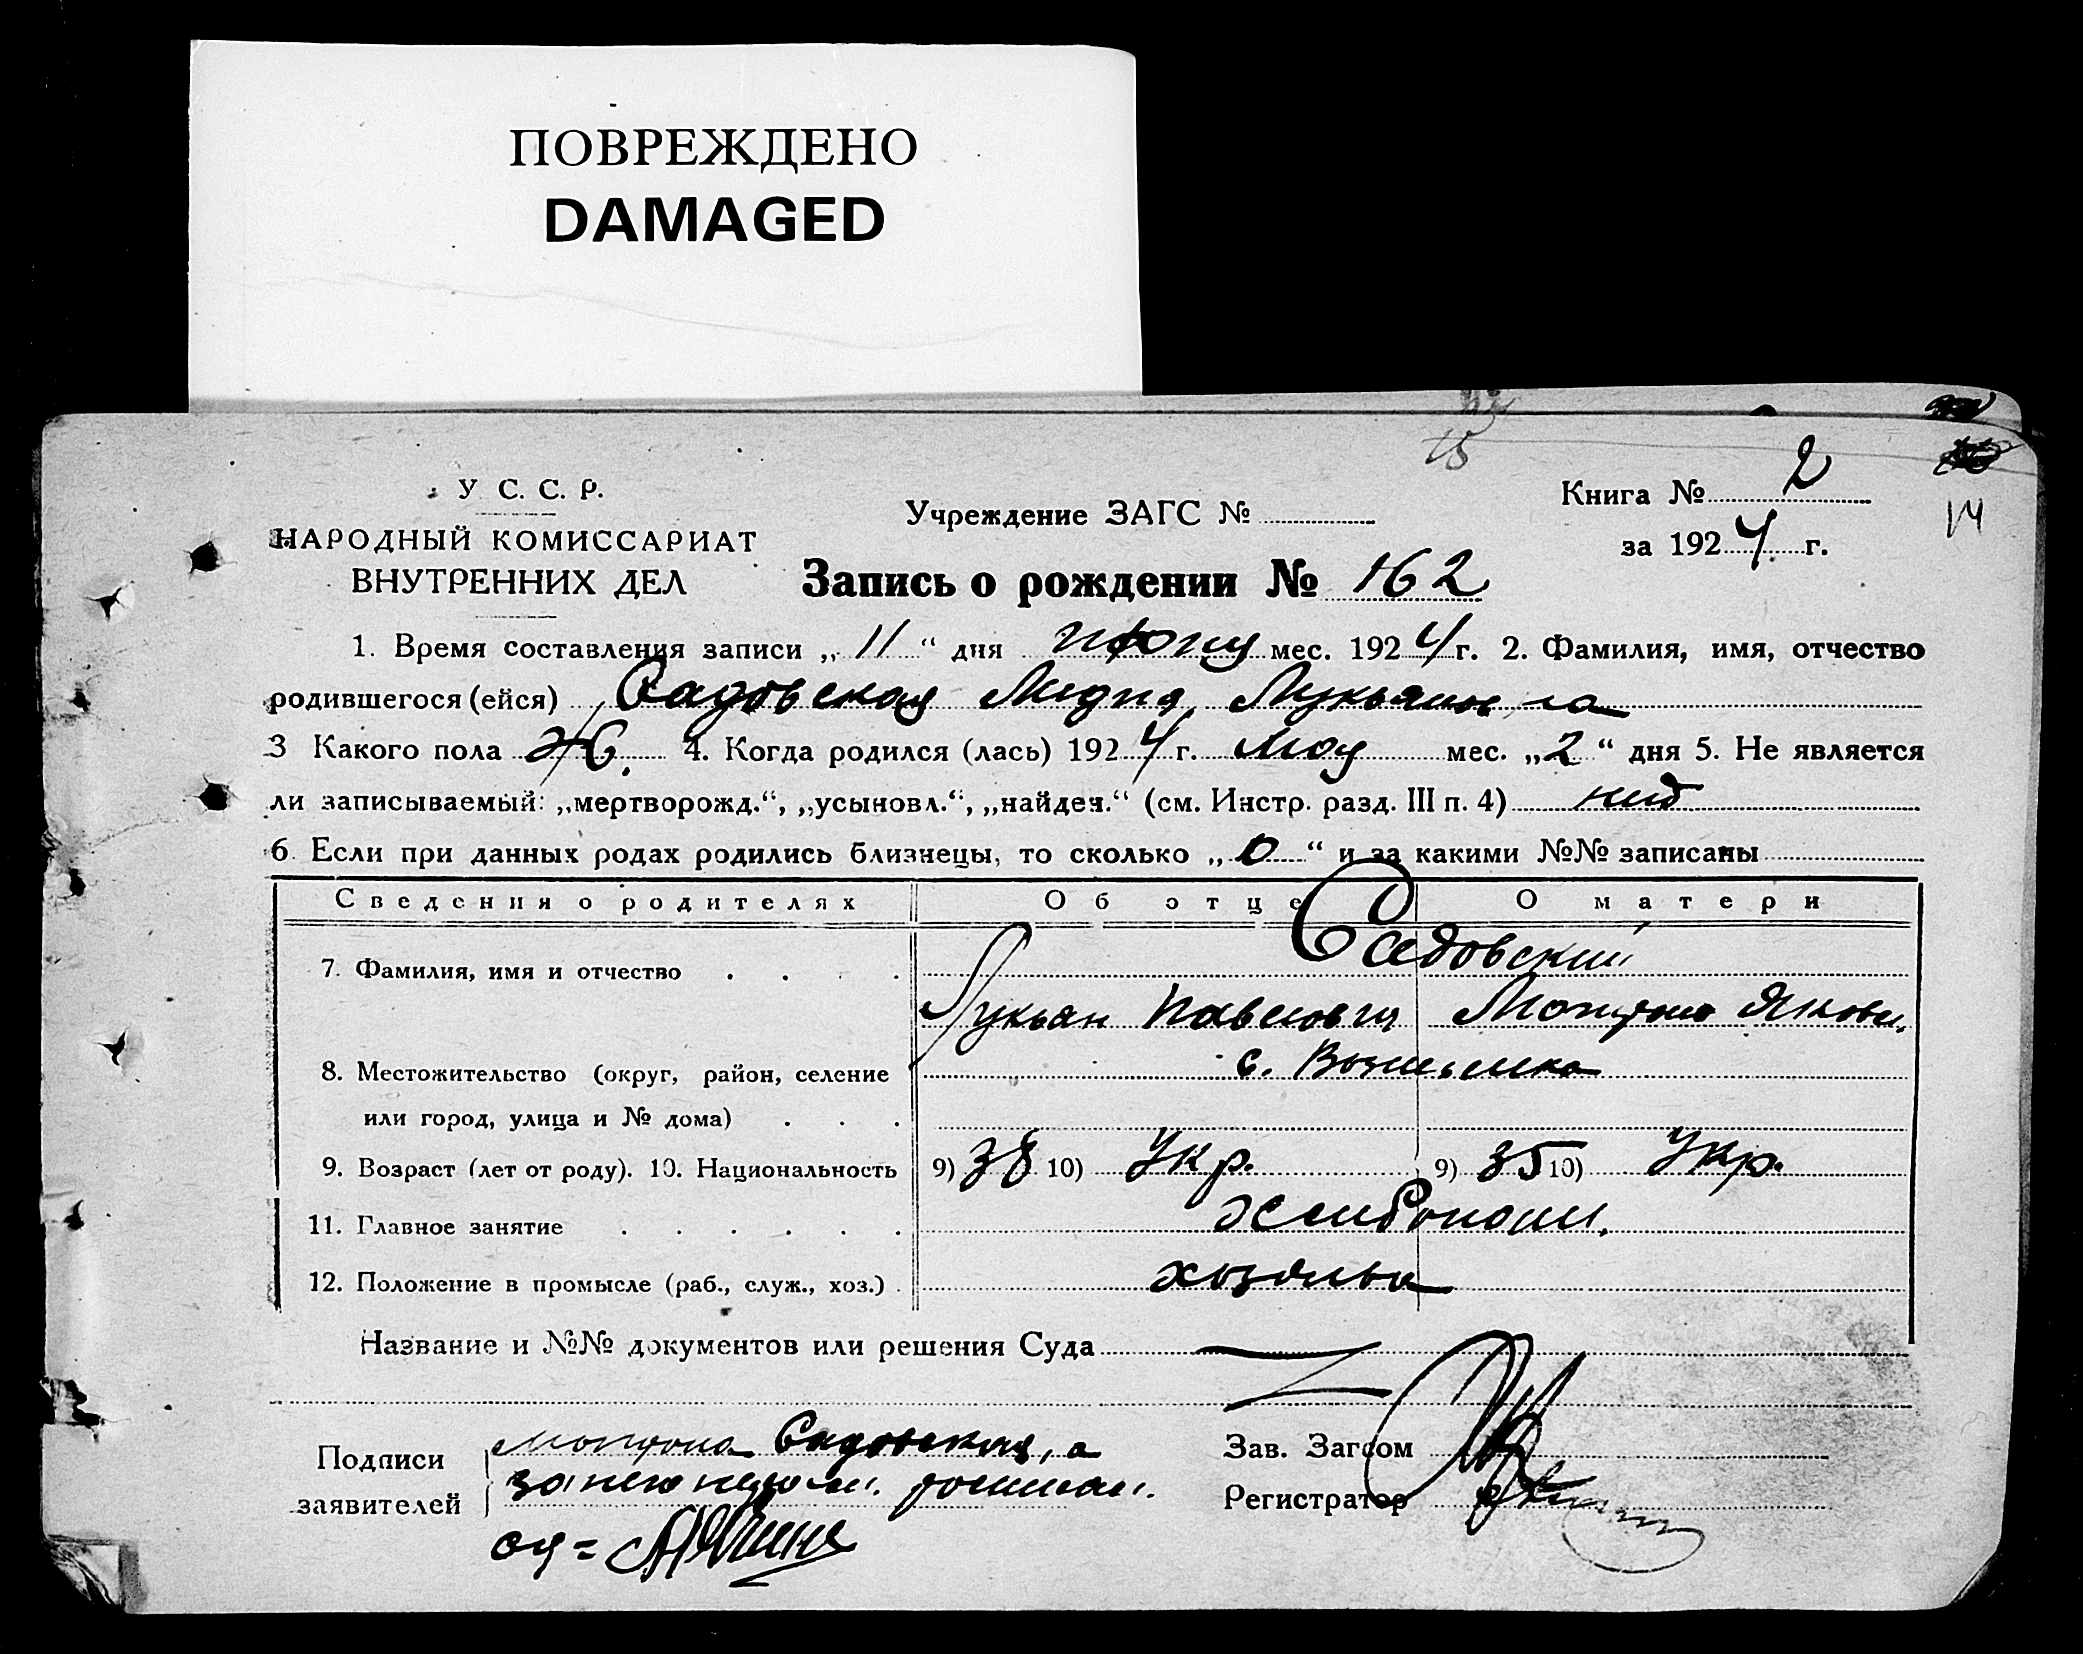 ПОВРЕЖДЕНО
DAMAGED
15
У С. С. Р.
НАРОДНЫЙ КОМИССАРИАТ
ВНУТРЕННИХ ДЕЛ
Учреждение ЗАГС №
Книга № 2
за 1924 г.
14
Запись о рождении № 162
1. Время составления записи „11“ дня мес. 1924 г. 2. Фамилия, имя, отчество
родившегося (ейся) Садовская Лидия Лукьяновна
3 Какого пола Ж. 4. Когда родился (лась) 1924 г. Мая мес. „2“ дня 5. Не является
ли записываемый: „мертворожд.“, „усыновл.“, „найден.“ (см. Инстр. разд. III п. 4) нет
6. Если при данных родах родились близнецы, то сколько „0“ и за какими №№ записаны
Сведения о родителях Об отце О матери
7. Фамилия, имя и отчество Садовский
Лукьян Павлович Мотрона Яковл.
8. Местожительство (округ, район, селение с.
или город, улица и № дома)
9. Возраст (лет от роду). 10. Национальность 9) 38 10) Укр. 9) 35 10) Укр.
11. Главное занятие хлебопаш.
12. Положение в промысле (раб., служ., хоз.) хозяева
Название и №№ документов или решения Суда
Подписи заявителей Мотрона Садовская, а
за нею
Зав. Загсом
Регистратор